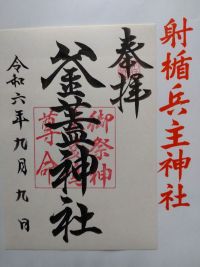 射楯兵主神社
奉拝
釜蓋神社
御祭神
尊命
令和六年九月九日